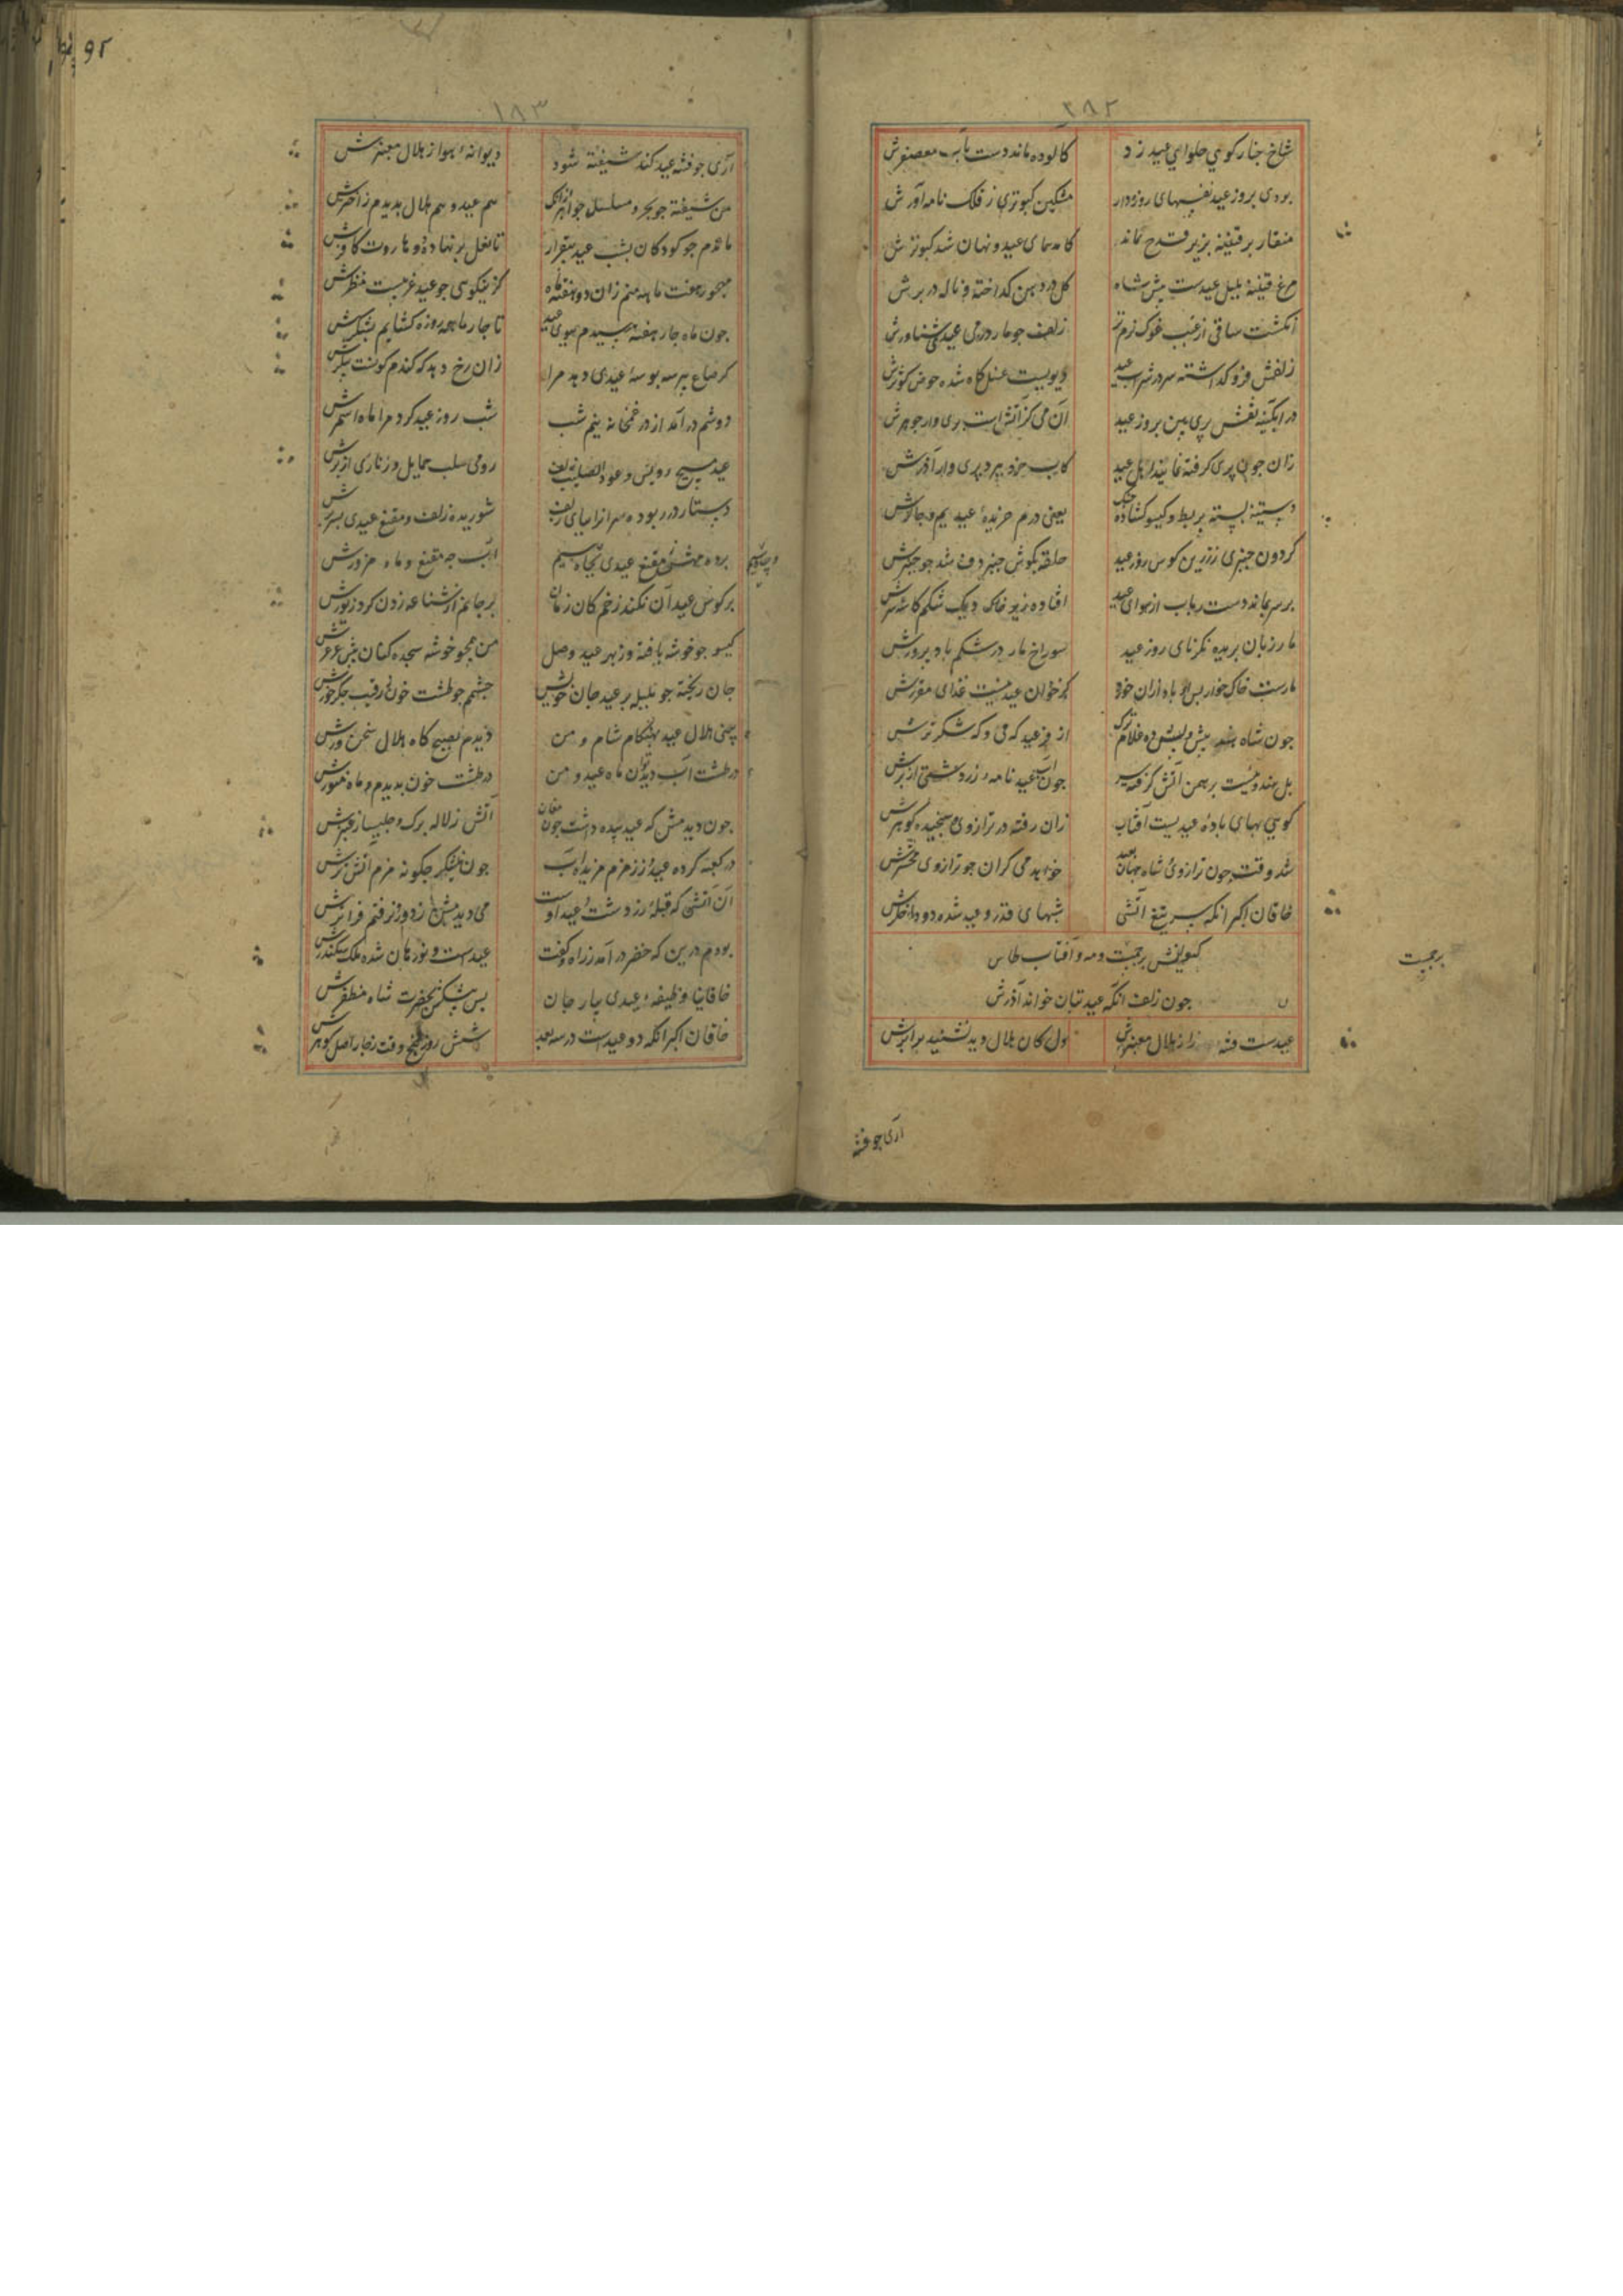 ۲۸۲
شاخ چنار کویی حلوای عید زد
کالوده ماند دست بآب معصفرش
بودی بروز عید نفسهای روزه‌دار
مشکین کبوتری ز فلک نامه‌آورش
منقار بر قنینه بزیر قدح نماند
کامد همای عید و نهان شد کبوترش
مرغ قنینه بلبل عیدست پیش شاه
گل در دهن کداخته و ناله در برش
انکشت ساقی از غبب غوک نرم‌تر
زلف جو مار در می عیدی شناورش
زلفش فرو کذاشته سر در شراب عید
دیویست غسل کاه شده حوض کوثرش
در ابکینه نقش پری بین بروز عید
آن می کز آتش است پری وار جوهرش
زان جون پری کرفته نمایند اهل عید
کاسیب خرد پری وار آذرش
دستینه بسته بربط و کیسو کشاده چنک
یعنی درم خریده عیدیم و چاکرش
کردون جنبری ز زرین کوس روز عید
حلقه بکوش جنبر دف شد جو جنبرش
بر سر بماند دست رباب از هوای عید
افتاده زیر خاک و یک شکم کاسه سرش
مار زبان بریده نکر نای روز عید
سوراخ مار در شکم باد پرورش
مارست خاک خوار پس او باد ازان خورد
کز خوان عید نیست غذای مقررش
جون شاه هند پیش و پسش ده غلام ترک
از فر عید که می و که شکر ترش
بل هندویست برهمن آتش کرفته سر
جون آب عید نامه زردشتی از برش
کویی بهای باده عیدیست آفتاب
زان رفته در ترازوی سنجیده کوهرش
شد وقت جون ترازوی شاه جهان بعید
خواهد می کران جو ترازوی محشرش
خاقان اکبر انکه سر تیغ آتشی
شبهای قدر و عید شده دود اخکرش
کیوانش برجیست و مه و آفتاب طاس
برجیست
جون زلف انکه عید بتان خواند آذرش
عیدست فتنه را ز هلال معنبرش
دل کان هلال دید نشنید برابرش
آری جو فتنه
۱۸۳
آری جو فتنه عید کند شیفته شود
دیوانه هوا ز هلال معنبرش
من شیفته جو بحر و مسلسل جو ابر ازانک
هم عید و هم هلال بدیدم ز اخترش
ماندم جو کودکان بشب عید بیقرار
تا نعل بر نهاد دو هاروت کافرش
مهجور هفت ماهه منم زان دو هفته ماه
کز نیکویی جو عید عزیست منظرش
جون ماه جار هفته رسیدم ببوی عید
تا جار ماهه روزه کشایم بشکرش
کر صاع سر سه بوسه عیدی دهد مرا
زان رخ دهد که کندم کونست پیکرش
دوشم در آمد از در غمخانه نیم شب
شب روز عید کرد مرا ماه اسمرش
عید مسیح رویش و عود الصلیب زلف
رومی سلب حمایل و زناری از برش
دستار در ربوده سران را بیای زلف
شوریده زلف و مقنع عیدی بسرش
بر کوس عید آن نکند زخم کان زمان
بر جانم از شناعه زدن کرد زیورش
کیسو جو خوشه بافته وز بهر عید وصل
من همجو خوشه سجده کنان پیش عرعرش
جان ریخته جو بلبله بر عید جان خویش
جشمم جو طشت خون ز رقیب جکر خورش
بینی هلال عید بهنکام شام و من
دیدم بصبح کاه هلال سخن ورش
در طشت آب دیدتوان ماه عید و من
در طشت خون بدیدم و ماه منورش
جون دیدمش که عید سده داشت جون مغان
آتش ز لاله برک و چلیپا ز عنبرش
در کعبه کرده عید و ز زمزم مزیده آب
جون نیشکر جکونه مزم آتش ترش
آن آتشی که قبله زردشت و عید اوست
می دیدمش ز دور و نرفتم فراترش
بودم درین که خضر در آمد ز راه و کفت
عیدست و نورهان شده ملک سکندرش
خاقانیا وظیفه عیدی بیار جان
بس بیشکش بحضرت شاه مظفرش
خاقان اکبر انکه دو عیدست در سه بعد
شش روز و پنج وقت ز جار اصل کوهرش